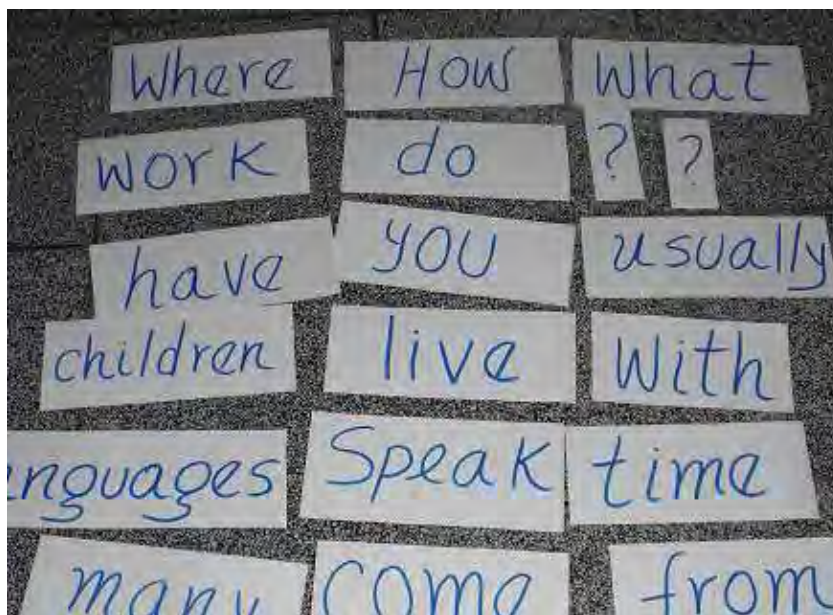 Where How What
work do ? ?
have you usually
children live With
nguages Speak time
many come from